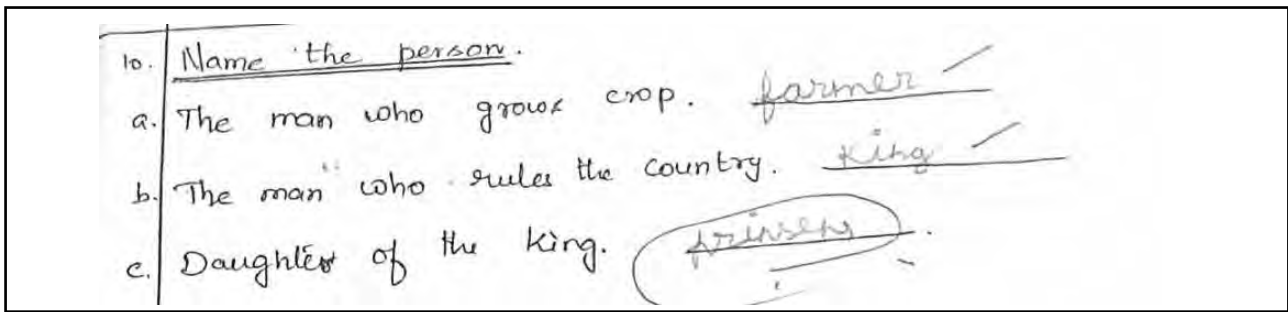 10. Name the person.
a. The man who grows crop. farmer
b. The man who rules the country. King
c. Daughter of the king. prinsens